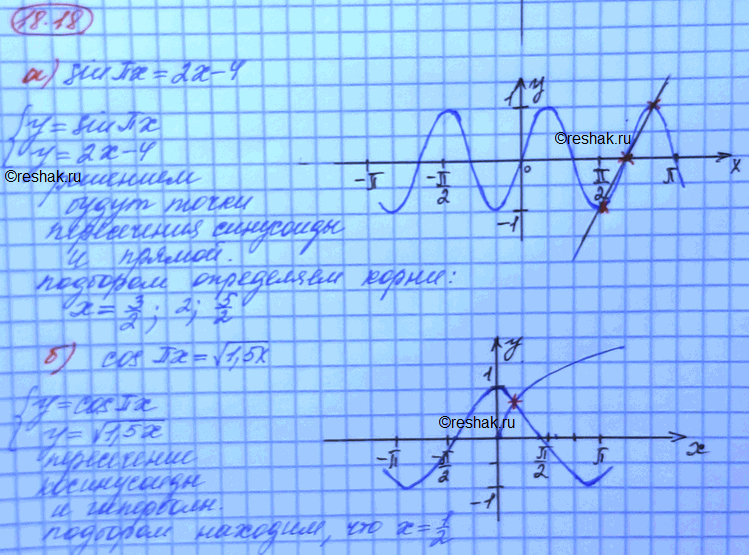 18.18
а) sin πx = 2x-4
{ y = sin πx
y = 2x-4
©reshak.ru
решением
будут точки
пересечения синусоиды
и прямой.
подбором определяем корни:
x = 3/2; 2; 5/2
y
1
©reshak.ru
-π
-π/2
0
π/2
π
x
-1
б) cos πx = √1,5x
{ y = cos πx
y = √1,5x
пересечение
косинусоиды
и гиперболы.
подбором находим, что x = 1/2
y
1
©reshak.ru
-π
-π/2
π/2
π
x
-1